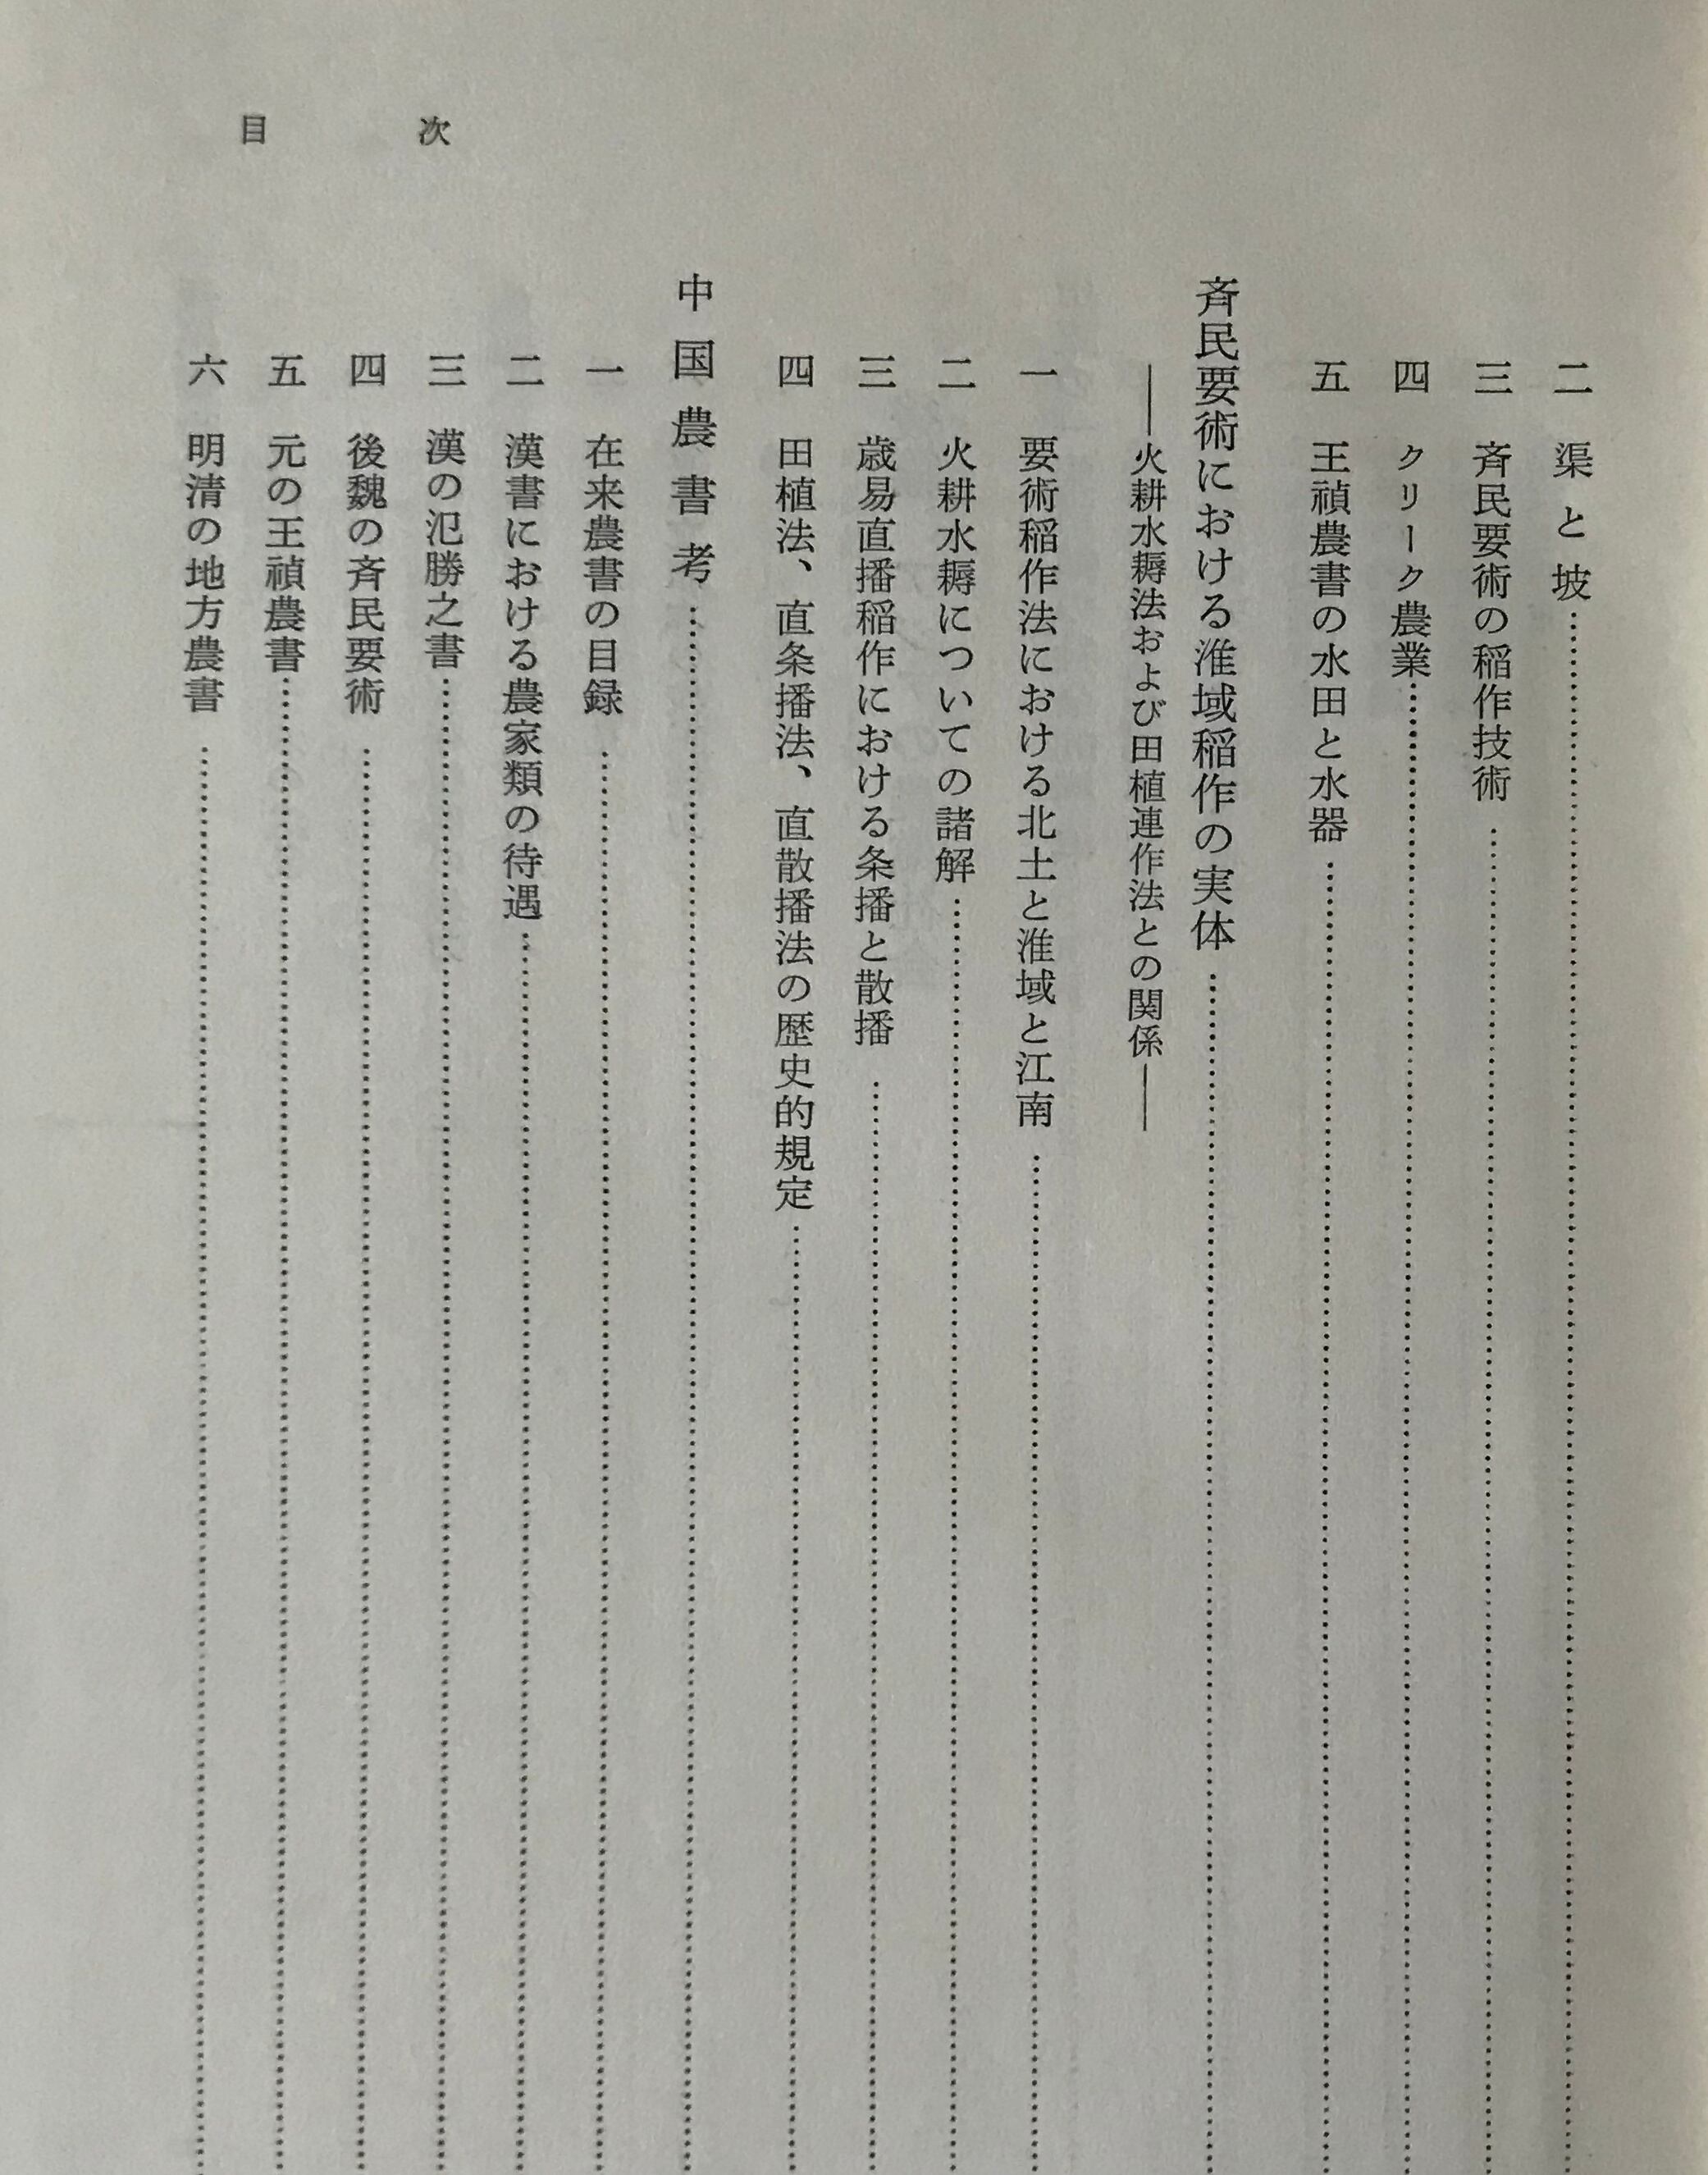 目次
二 渠と坡
三 斉民要術の稲作技術
四 クリーク農業
五 王禎農書の水田と水器
斉民要術における淮域稲作の実体
――火耕水耨法および田植連作法との関係――
一 要術稲作法における北土と淮域と江南
二 火耕水耨についての諸解
三 歳易直播稲作における条播と散播
四 田植法、直条播法、直散播法の歴史的規定
中国農書考
一 在来農書の目録
二 漢書における農家類の待遇
三 漢の氾勝之書
四 後魏の斉民要術
五 元の王禎農書
六 明清の地方農書